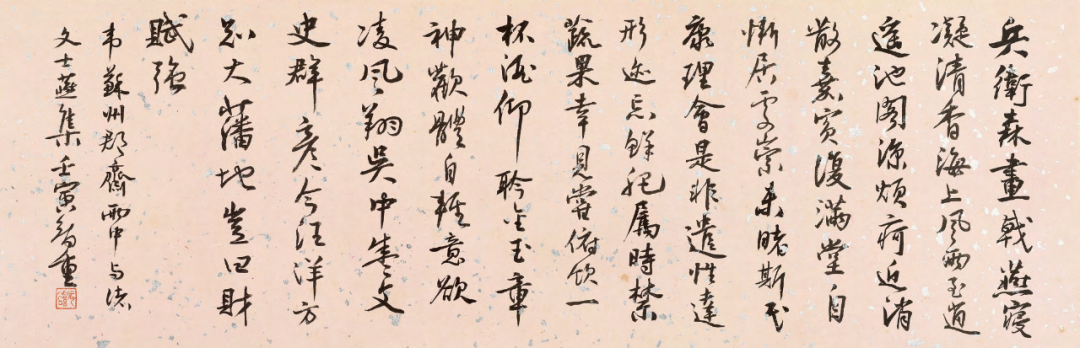 兵衛森畫戟燕寢
凝清香海上風雨至逍
遙池閣涼煩痾近消
散嘉賓復滿堂自
慚居處崇未睹斯民
康理會是非遣性達
形迹忘鮮肥屬時禁
蔬果幸見嘗俯飲一
杯酒仰聆金玉章
神歡體自輕意欲
凌風翔吳中盛文
史群彥今汪洋方
知大藩地豈曰財
賦強
韋蘇州郡齋雨中与諸
文士燕集壬寅